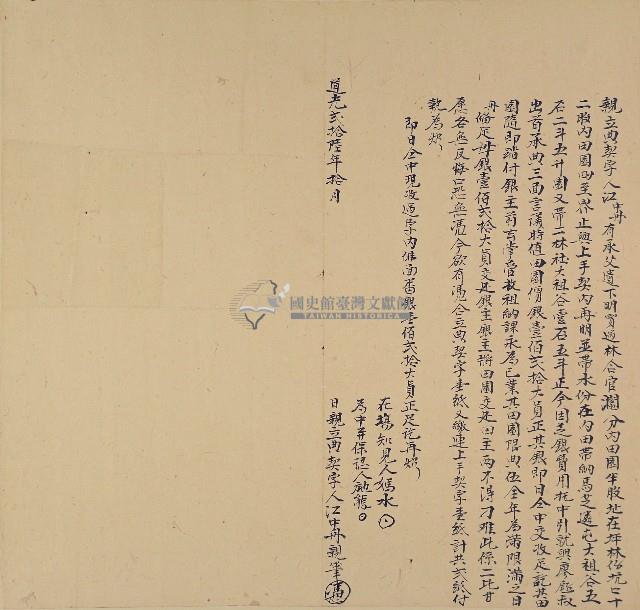 親立典契字人江冉有承父遺下明買過林合官鬮分內田園半股址在坪林伯坑口十
二股內田園四至界止與上手契內再明並帶水份在內田帶納馬芝遴屯大租谷五
石二斗五升園又帶二林社大租谷壹石五斗正今因乏銀費用托中引就與廖
出首承典三面言議時值田園價銀壹佰貳拾大員正其銀即日仝中交收足訖其田
園隨即踏付銀主前去掌管收租納課永為己業其田園限典伍全年為滿限滿之日
冉備足母銀壹佰貳拾大員交足銀主銀主將田園交还田主兩不得刁难此係二比甘
愿各無反悔口恐無憑今欲有憑合立典契字壹紙又繳連上手契字壹紙計共貳紙付
執為炤
即日仝中現收過字內佛面番銀壹佰貳拾大員正足訖再炤
在場知見人媽水
為中并保認人
道光貳拾陸年拾月 日親立典契字人江冉親筆
國史館臺灣文獻館
TAIWAN HISTORICA